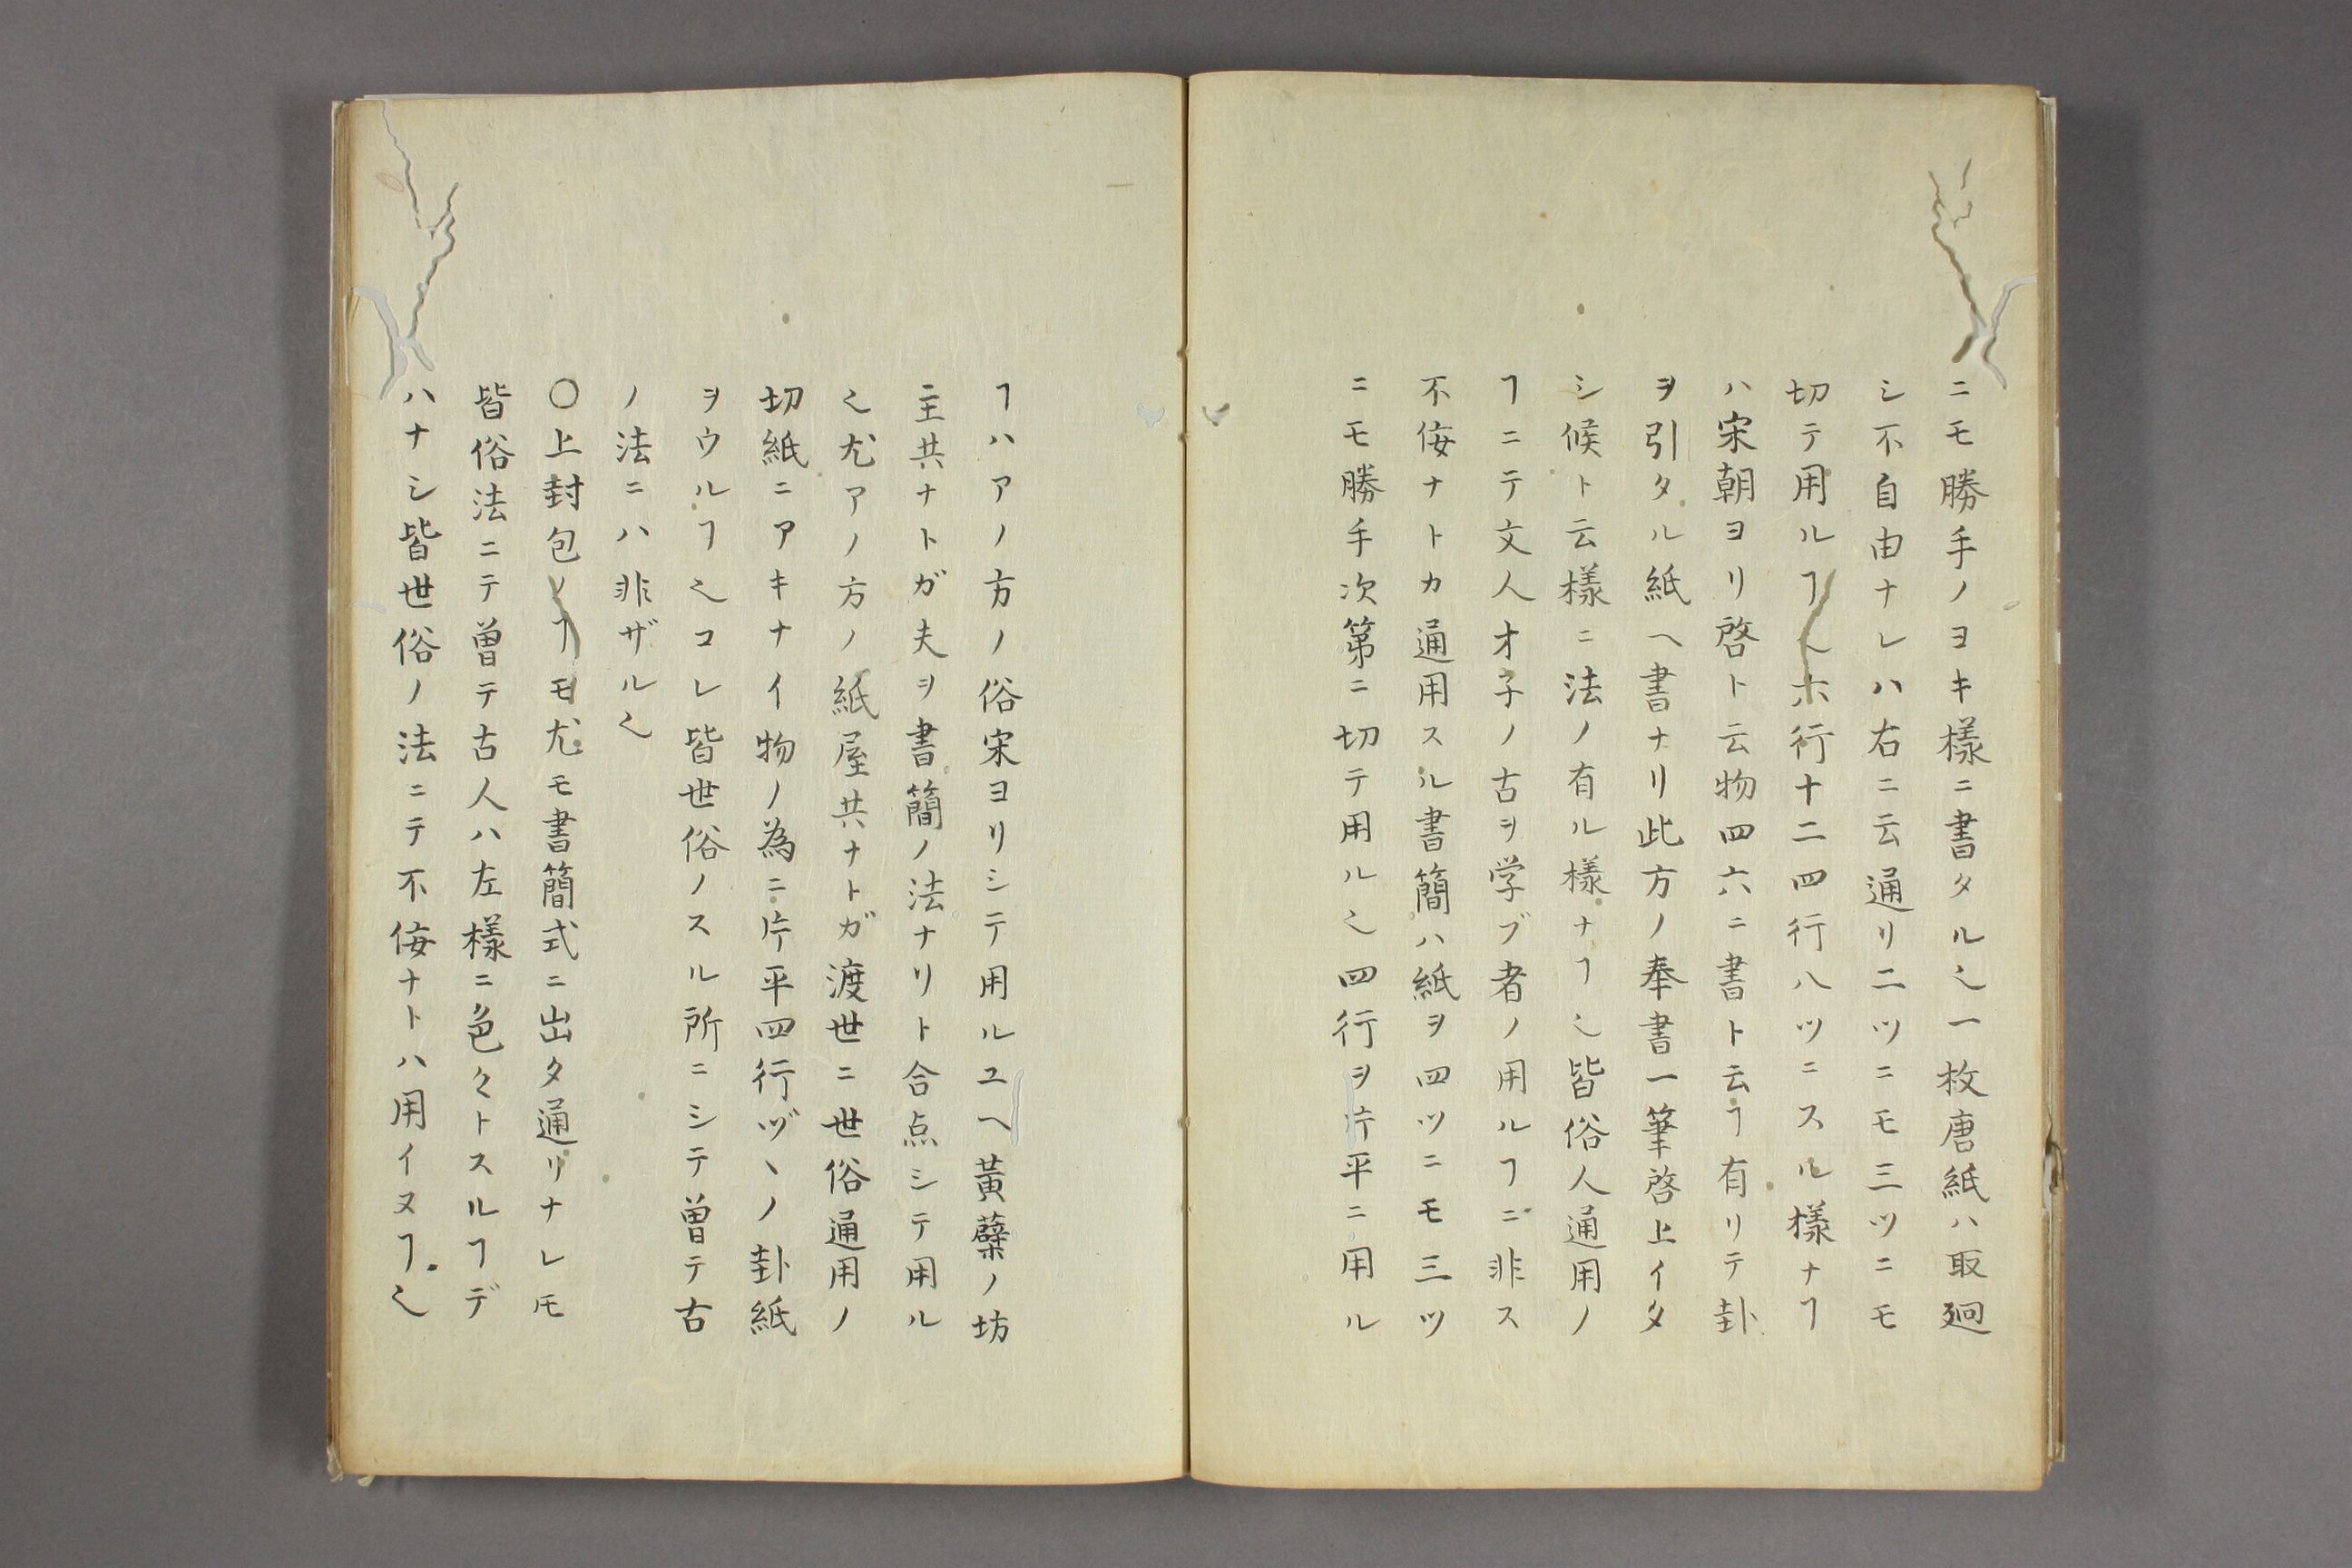 ニモ勝手ノヨキ樣ニ書タル〻一枚唐紙ハ取廻
シ不自由ナレハ右ニ云通リ二ツニモ三ツニモ
切テ用ルヿ〻ホ行十二四行八ツニスル樣ナヿ
ハ宋朝ヨリ啓ト云物四六ニ書ト云ヿ有リテ卦
ヲ引タル紙ヘ書ナリ此方ノ奉書一筆啓上イタ
シ候ト云樣ニ法ノ有ル樣ナヿ〻皆俗人通用ノ
ヿニテ文人才子ノ古ヲ学ブ者ノ用ルヿニ非ス
不侫ナトカ通用スル書簡ハ紙ヲ四ツニモ三ツ
ニモ勝手次第ニ切テ用ル〻四行ヲ片平ニ用ル
ヿハアノ方ノ俗宋ヨリシテ用ルユヘ黃蘗ノ坊
主共ナトガ夫ヲ書簡ノ法ナリト合点シテ用ル
〻尤アノ方ノ紙屋共ナトガ渡世ニ世俗通用ノ
切紙ニアキナイ物ノ為ニ片平四行ヅヽノ卦紙
ヲウルヿ〻コレ皆世俗ノスル所ニシテ曽テ古
ノ法ニハ非ザル〻
〇上封包ノヿモ尤モ書簡式ニ出タ通リナレ𪜈
皆俗法ニテ曽テ古人ハ左樣ニ色々トスルヿデ
ハナシ皆世俗ノ法ニテ不侫ナトハ用イヌヿ〻